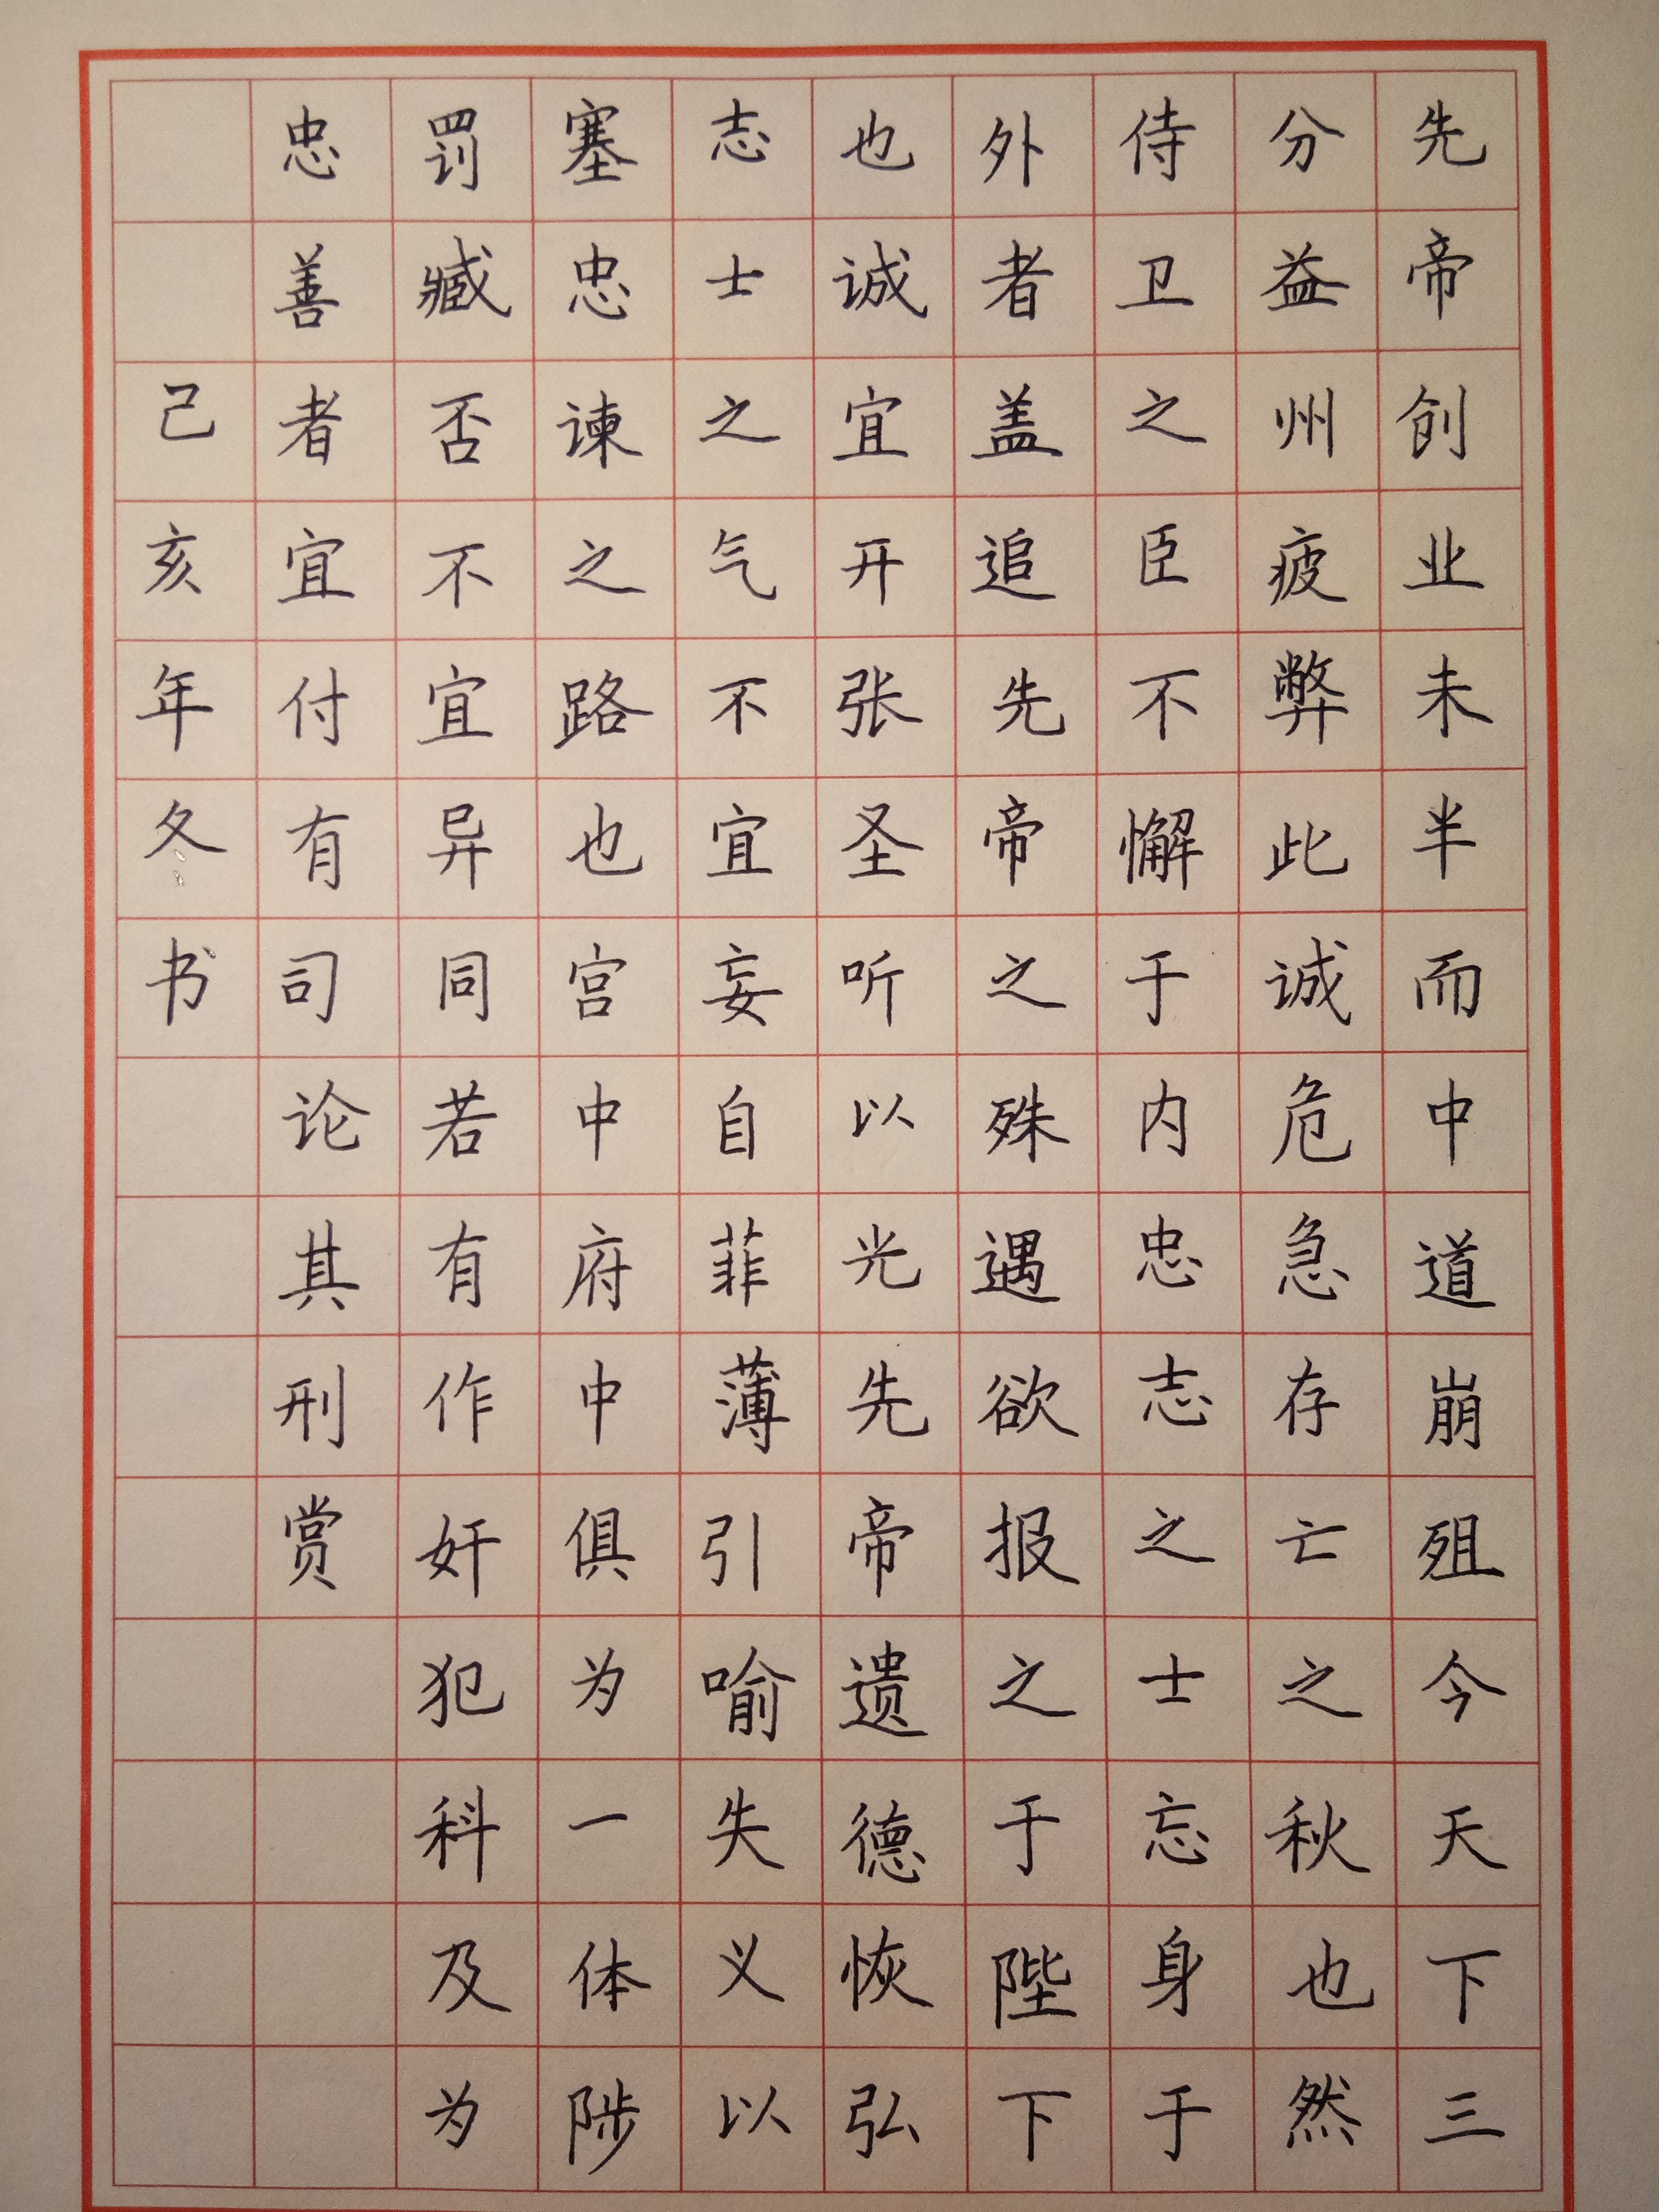 先帝创业未半而中道崩殂今天下三
分益州疲弊此诚危急存亡之秋也然
侍卫之臣不懈于内忠志之士忘身于
外者盖追先帝之殊遇欲报之于陛下
也诚宜开张圣听以光先帝遗德恢弘
志士之气不宜妄自菲薄引喻失义以
塞忠谏之路也宫中府中俱为一体陟
罚臧否不宜异同若有作奸犯科及为
忠善者宜付有司论其刑赏
己亥年冬书